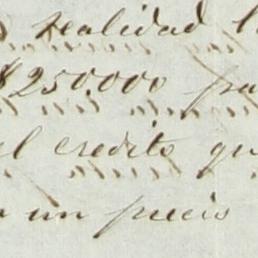 realidad
$250.000
el credito qu
un precio